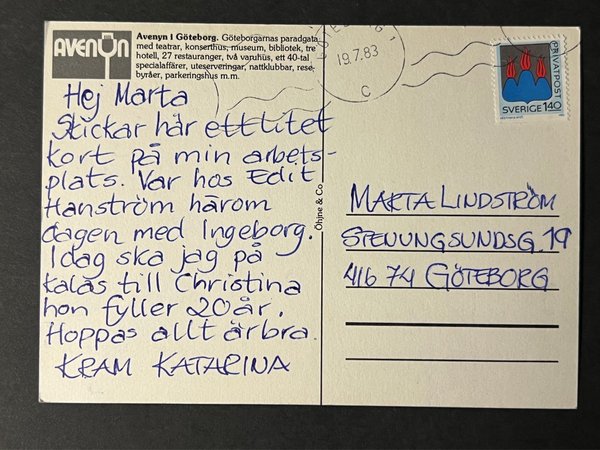 AVENYN
Avenyn i Göteborg. Göteborgarnas paradgata
med teatrar, konserthus, museum, bibliotek, tre
hotell, 27 restauranger, två varuhus, ett 40-tal
specialaffärer, uteserveringar, nattklubbar, rese-
byråer, parkeringshus m.m.
Hej Marta
Skickar här ett litet
kort på min arbets-
plats. Var hos Edit
Hanström härom
dagen med Ingeborg.
Idag ska jag på
kalas till Christina
hon fyller 20 år.
Hoppas allt är bra.
KRAM KATARINA
Ohjne & Co
19.7.83
C
PRIVATPOST
SVERIGE 1.40
MARTA LINDSTRÖM
STENUNGSUNDSG. 19
416 74 GÖTEBORG